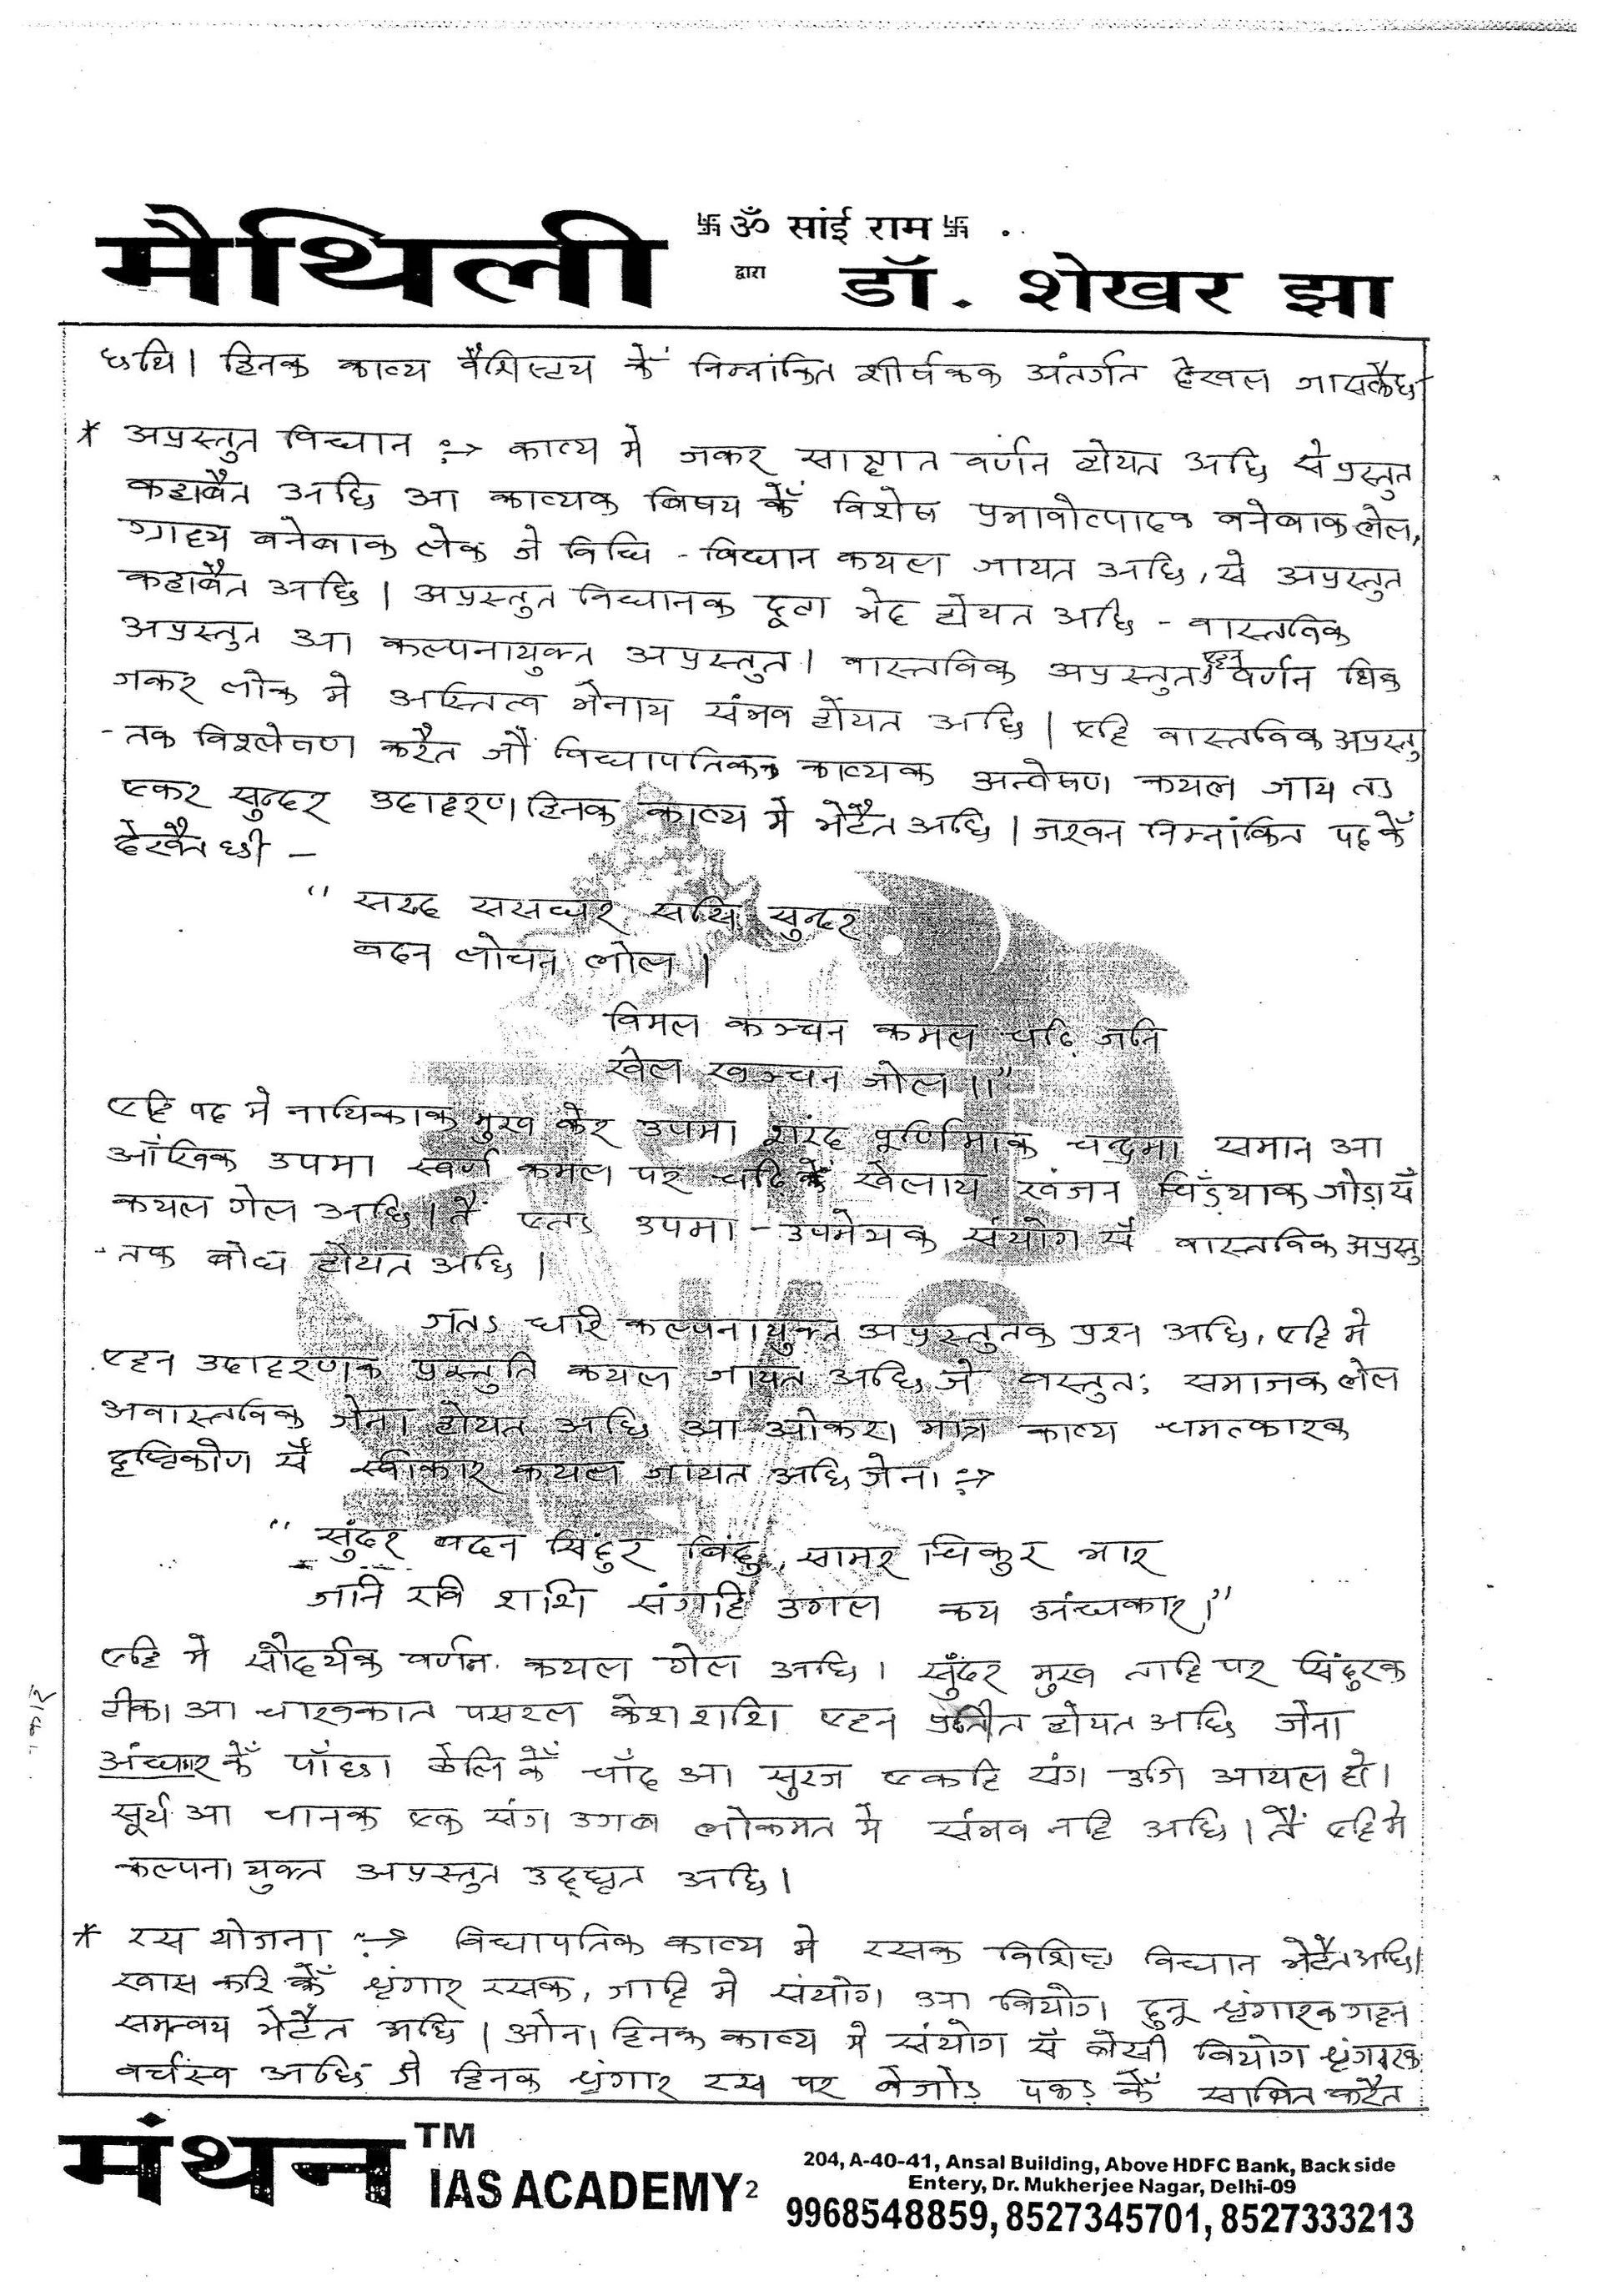 卐 ॐ सांई राम 卐
मैथिली द्वारा डॉ. शेखर झा
छथि। हिनक काव्य वैशिष्टय केँ निम्नांकित शीर्षकक अंतर्गत देखल जासकैछ
* अप्रस्तुत विधान :→ काव्य मे जकर साक्षात वर्णन होयत अछि से प्रस्तुत
कहाबैत अछि आ काव्यक विषय केँ विशेष प्रभावोत्पादक बनेबाक लेल,
ग्राह्य बनेबाक लेल जे विधि - विधान कयल जायत अछि, से अप्रस्तुत
कहाबैत अछि। अप्रस्तुत विधानक दूटा भेद होयत अछि - वास्तविक
अप्रस्तुत आ कल्पनायुक्त अप्रस्तुत। वास्तविक अप्रस्तुत एहन वर्णन थिक
जकर लोक मे अस्तित्व भेनाय संभव होयत अछि। एहि वास्तविक अप्रस्तु
-तक विश्लेषण करैत जौं विद्यापतिकक काव्यक अन्वेषण कयल जाय तऽ
एकर सुन्दर उदाहरण हिनक काव्य मे भेटैत अछि। जखन निम्नांकित पद केँ
देखैत छी -
" सरद ससधर ससि सुन्दर
वदन लोचन लोल।
विमल कञ्चन कमल चढि जनि
खेल खञ्चन जोल॥"
एहि पद मे नायिकाक मुख केर उपमा शरद पूर्णिमाक चन्द्रमा समान आ
आँखिक उपमा स्वर्ण कमल पर चढि केँ खेलाय खंजन चिड़ँयाक जोड़ा सँ
कयल गेल अछि। तैं एतऽ उपमा - उपमेयक संयोग सँ वास्तविक अप्रस्तु
-तक बोध होयत अछि।
जतऽ धरि कल्पनायुक्त अप्रस्तुतक प्रश्न अछि, एहि मे
एहन उदाहरणक प्रस्तुति कयल जायत अछि जे वस्तुतः समाजक लेल
अवास्तविक जेना होयत अछि आ ओकरा मात्र काव्य चमत्कारक
दृष्टिकोण सँ स्वीकार कयल जायत अछि जेना :→
" सुंदर वदन सिंदुर बिंदु, सामर चिकुर भार
जनि रवि शशि संगहि उगल कय अंधकार।"
एहि मे सौदर्यक वर्णन कयल गेल अछि। सुंदर मुख ताहि पर सिंदुरक
टीका आ चारुकात पसरल केश राशि एहन प्रतीत होयत अछि जेना
अंधार केँ पाँछा ठेलि केँ चाँद आ सुरज एकहि संग उगि आयल हो।
सूर्य आ चानक एक संग उगब लोकमत मे संभव नहि अछि। तैं एहि मे
कल्पनायुक्त अप्रस्तुत उद्धृत अछि।
* रस योजना :→ विद्यापतिक काव्य मे रसक विशिष्ट विधान भेटैत अछि।
खास करि केँ श्रृंगार रसक, जाहि मे संयोग आ वियोग दुनू श्रृंगारक गहन
समन्वय भेटैत अछि। ओना हिनक काव्य मे संयोग सँ बेसी वियोग श्रृंगारक
वर्चस्व अछि जे हिनक श्रृंगार रस पर बेजोड़ पकड़ केँ साबित करैत
मंथन TM
IAS ACADEMY 2
204, A-40-41, Ansal Building, Above HDFC Bank, Back side
Entery, Dr. Mukherjee Nagar, Delhi-09
9968548859, 8527345701, 8527333213